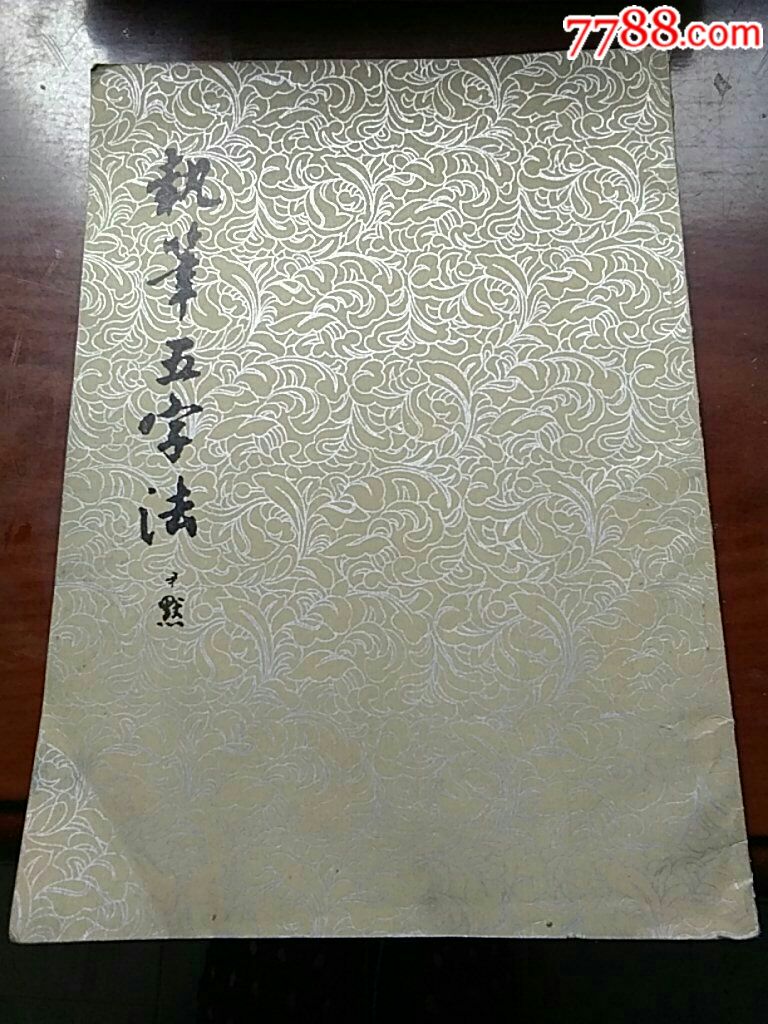 7788.com
執筆五字法
尹默